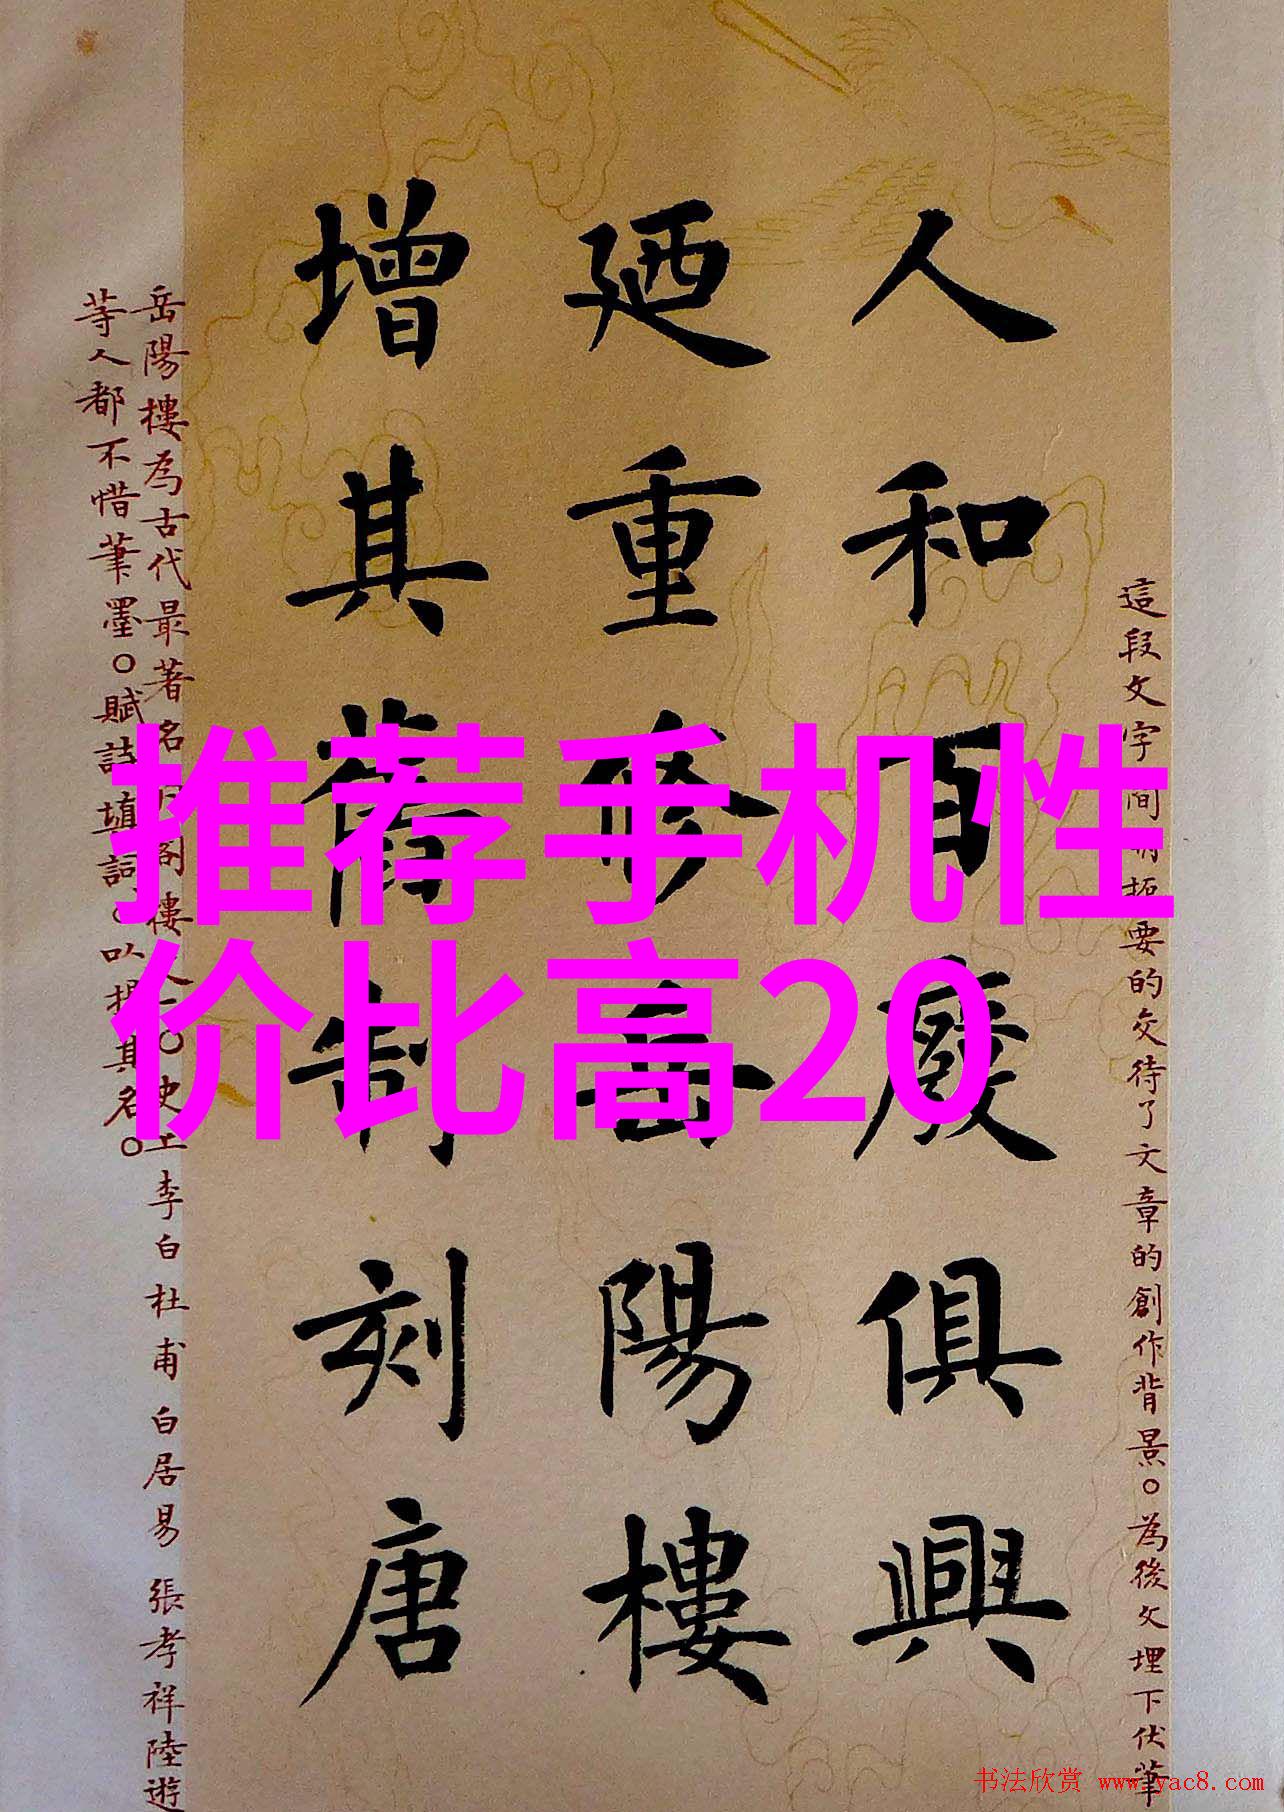 推荐手机性
价比高20
這段文字間明扼要的交待了文章的創作背景。為後文埋下伏筆
人和百廢俱興
廼重修岳陽樓
增其舊制刻唐
岳陽樓為古代最著名
樓
史上李白杜甫白居易張孝祥陸遊
等人都不惜筆墨。賦詩填詞、以揚其名。
书法欣赏 www.yac8.com